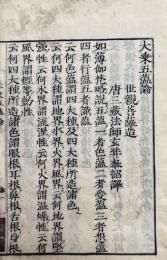 大乘五蘊論
世親菩薩造
唐三藏法師玄奘奉詔譯
如薄伽梵略說五蘊一者色蘊二者受蘊三者想蘊
四者行蘊五者識蘊
云何色蘊謂四大種及四大種所造諸色
云何四大種謂地界水界火界風界云何地界謂堅
強性云何水界謂流濕性云何火界謂溫燥性云何
風界謂輕等動性
云何四大種所造諸色謂眼根耳根鼻根舌根身根